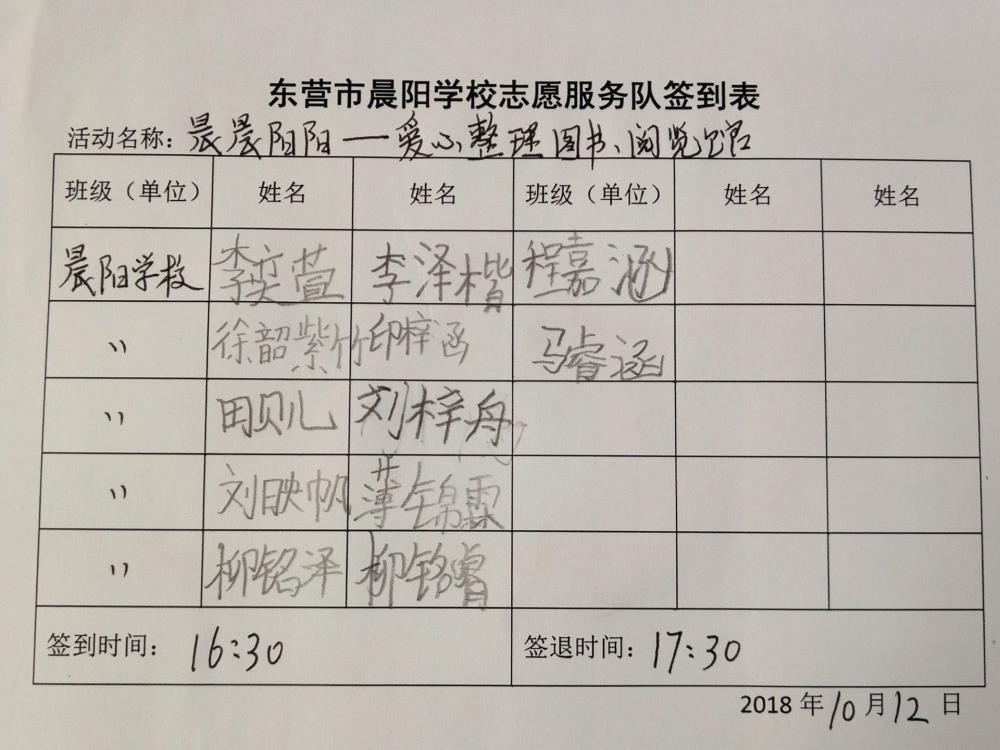 东营市晨阳学校志愿服务队签到表
活动名称：晨晨阳阳一爱心整理图书、阅览室
班级（单位） 姓名 姓名 班级（单位） 姓名 姓名
晨阳学校 李奕萱 李泽楷 程嘉涵
〃 徐韶紫竹 印梓涵 马睿涵
〃 田贝儿 刘梓舟
〃 刘映帆 薄锦霖
〃 柳铭泽 柳铭睿
签到时间：16:30 签退时间：17:30
2018年10月12日